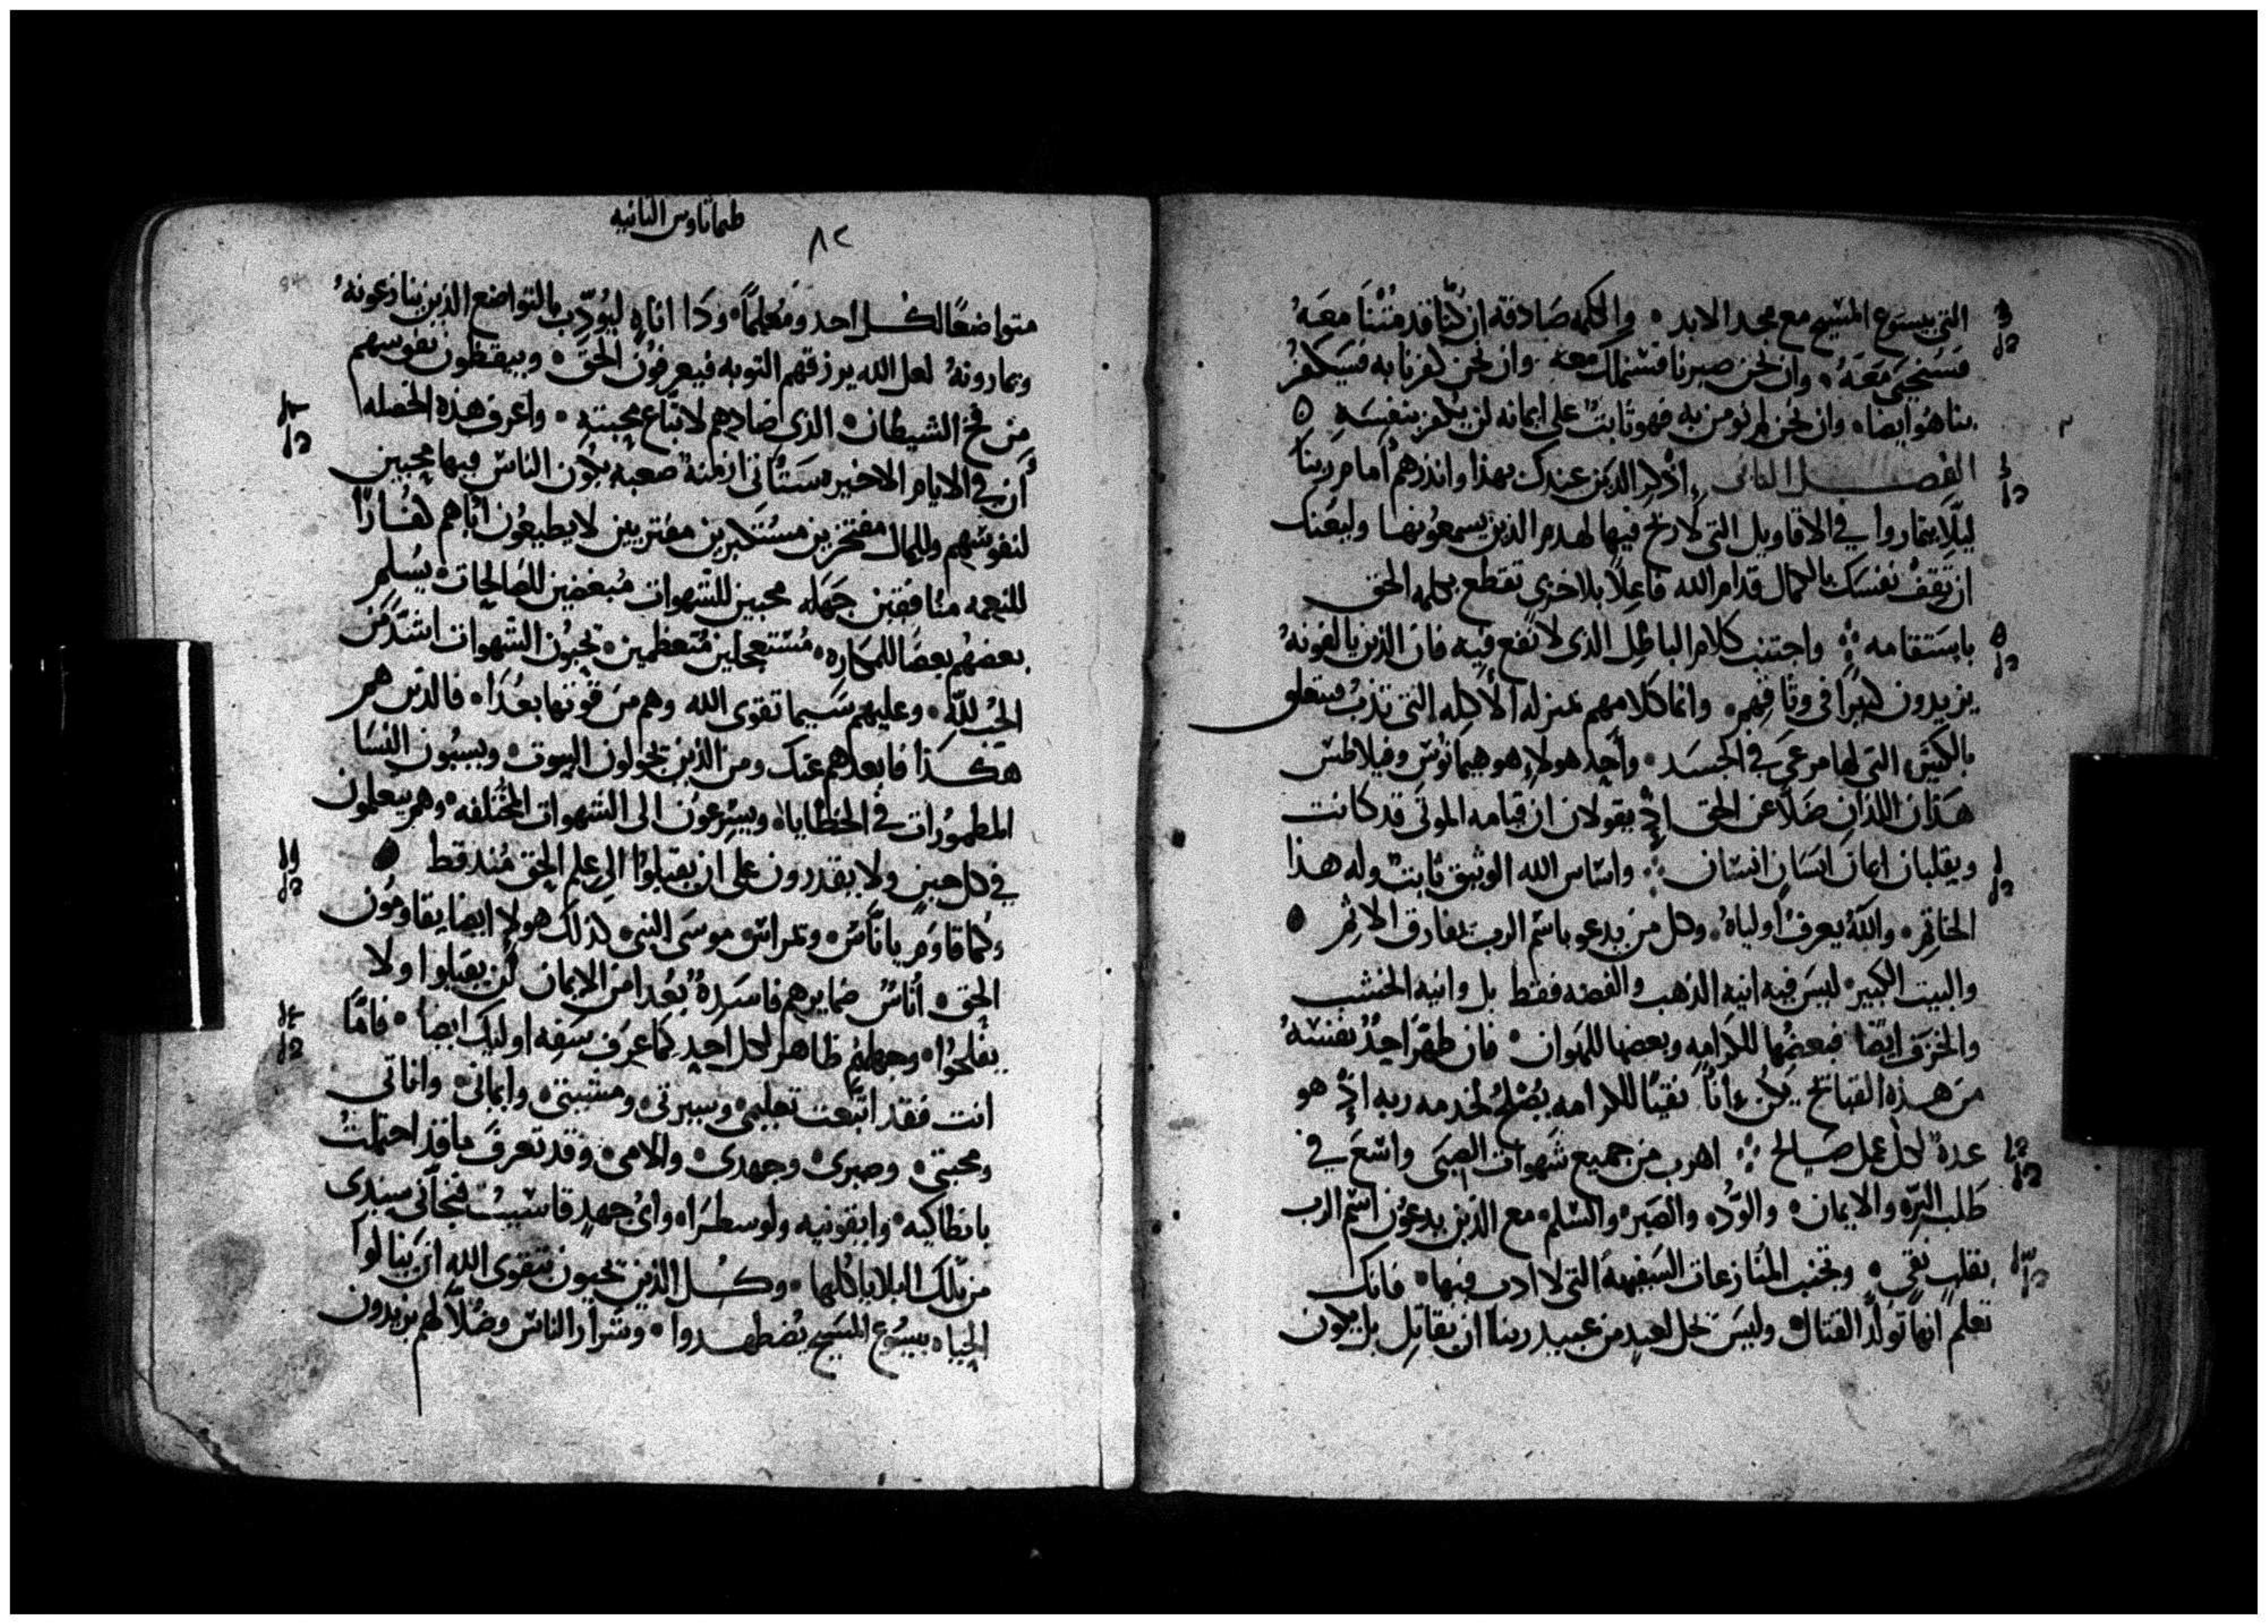 التي بيسوع المسيح مع مجد الابد ٥ والكلمه صادقه ان كنا قد متنا معه
فسنحيى معه ٥ وان نحن صبرنا فسنملك معه وان نحن كفرنا به فسيكفر
بنا هو ايضا ٥ وان نحن لم نومن به فهو ثابت على ايمانه لن يكفر بنفسه ٥
الفصل الثاني اذكر الذين عندك بهذا وانذرهم امام ربنا
ليلا يتماروا في الاقاويل التي لا ربح فيها لهدم الذين يسمعونها وليعنك
ان تقف نفسك بالكمال قدام الله فاعلا بلا خزي تقطع بكلمه الحق
باستقامه ۞ واجتنب كلام الباطل الذي لا نفع فيه فان الذين يالفونه
يزيدون كثيرا في وثاقهم ٥ وانما كلامهم بمنزله الأكله التي تذب فيتعلق
بالكثير التي لها مرعى في الجسد ٥ واحد هولاء هو هيمانوس وفيلاطس
هذان اللذان ضلا عن الحق اذ يقولان ان قيامه الموتى قد كانت
ويقلبان ايمان انسان انسان ۞ واساس الله الوثيق ثابت وله هذا
الخاتم ٥ والله يعرف اولياه ٥ وكل من يدعو باسم الرب يفارق الاثم ٥
والبيت الكبير ليس فيه انيه الذهب والفضه فقط بل وانيه الخشب
والخزف ايضا فبعضها للكرامه وبعضها للهوان ٥ فان طهر احد نفسه
من هذه القبايح يكن اناء نقيا للكرامه يصلح لخدمه ربه اذ هو
عدة لكل عمل صالح ۞ اهرب من جميع شهوات الصبى واسع في
طلب البره والايمان ٥ والود ٥ والصبر ٥ والسلم ٥ مع الذين يدعون اسم الرب
بقلب نقي ٥ وتجنب المنازعات السفيهة التي لا ادب فيها ٥ فانك
تعلم انها تولد القتال وليس تحل لعبد من عبيد ربنا ان يقاتل بل يكون
طيماتاوس الثانيه
٨٢
متواضعا لكل احد ومعلما ٥ وذا اناه ليودب بالتواضع الذين ينازعونه
ويمارونه لعل الله يرزقهم التوبه فيعرفون الحق ٥ ويستيقظون نفوسهم
من فخ الشيطان ٥ الذي اصادهم لاتباع محبته ٥ واعرف هذه الخصله
أن في الايام الاخيره ستاتي ازمنة صعبه يكون الناس فيها محبين
لنفوسهم وللمال مفتخرين مستكبرين مفترين لا يطيعون اباهم كفارا
للنعمه منافقين جهله محبين للشهوات مبغضين للصالحات يسلم
بعضهم بعضا للمكاره ٥ مستعجلين متعظمين ٥ يحبون الشهوات اشد من
الحب لله ٥ وعليهم سيما تقوى الله وهم من قوتها بعدا ٥ فالذين هم
هكذا فابعدهم عنك ومن الذين يجولون البيوت ٥ ويسبون النسا
المطمورات في الخطايا ٥ ويسرعون الى الشهوات المختلفه ٥ وهم يتعلمون
في كل حين ولا يقدرون على ان يقبلوا الى علم الحق منذ قط ٥
وكما قاوم ياناس ٥ ويمراس موسى النبي ٥ كذلك هولا ايضا يقاومون
الحق ٥ أناس ضمايرهم فاسدة بعدا من الايمان لن يقبلوا ولا
يفلحوا ٥ وجهلهم ظاهر لكل احد كما عرف سفه اوليك ايضا ٥ فاما
انت فقد اتبعت تعليمي ٥ وسيرتي ٥ ومشيتي ٥ وايماني ٥ واناتي
ومحبتي ٥ وصبري ٥ وجهدي ٥ والامي ٥ وقد تعرف ما قد احتملت
بانطاكيه ٥ وايقونيه ولوسطرا ٥ واي جهد قاسيت فنجاني سيدي
من تلك البلايا كلها ٥ وكل الذين يحبون بتقوى الله ان ينالوا
الحياه بيسوع المسيح يضطهدوا ٥ وشرار الناس وضلالهم يزيدون